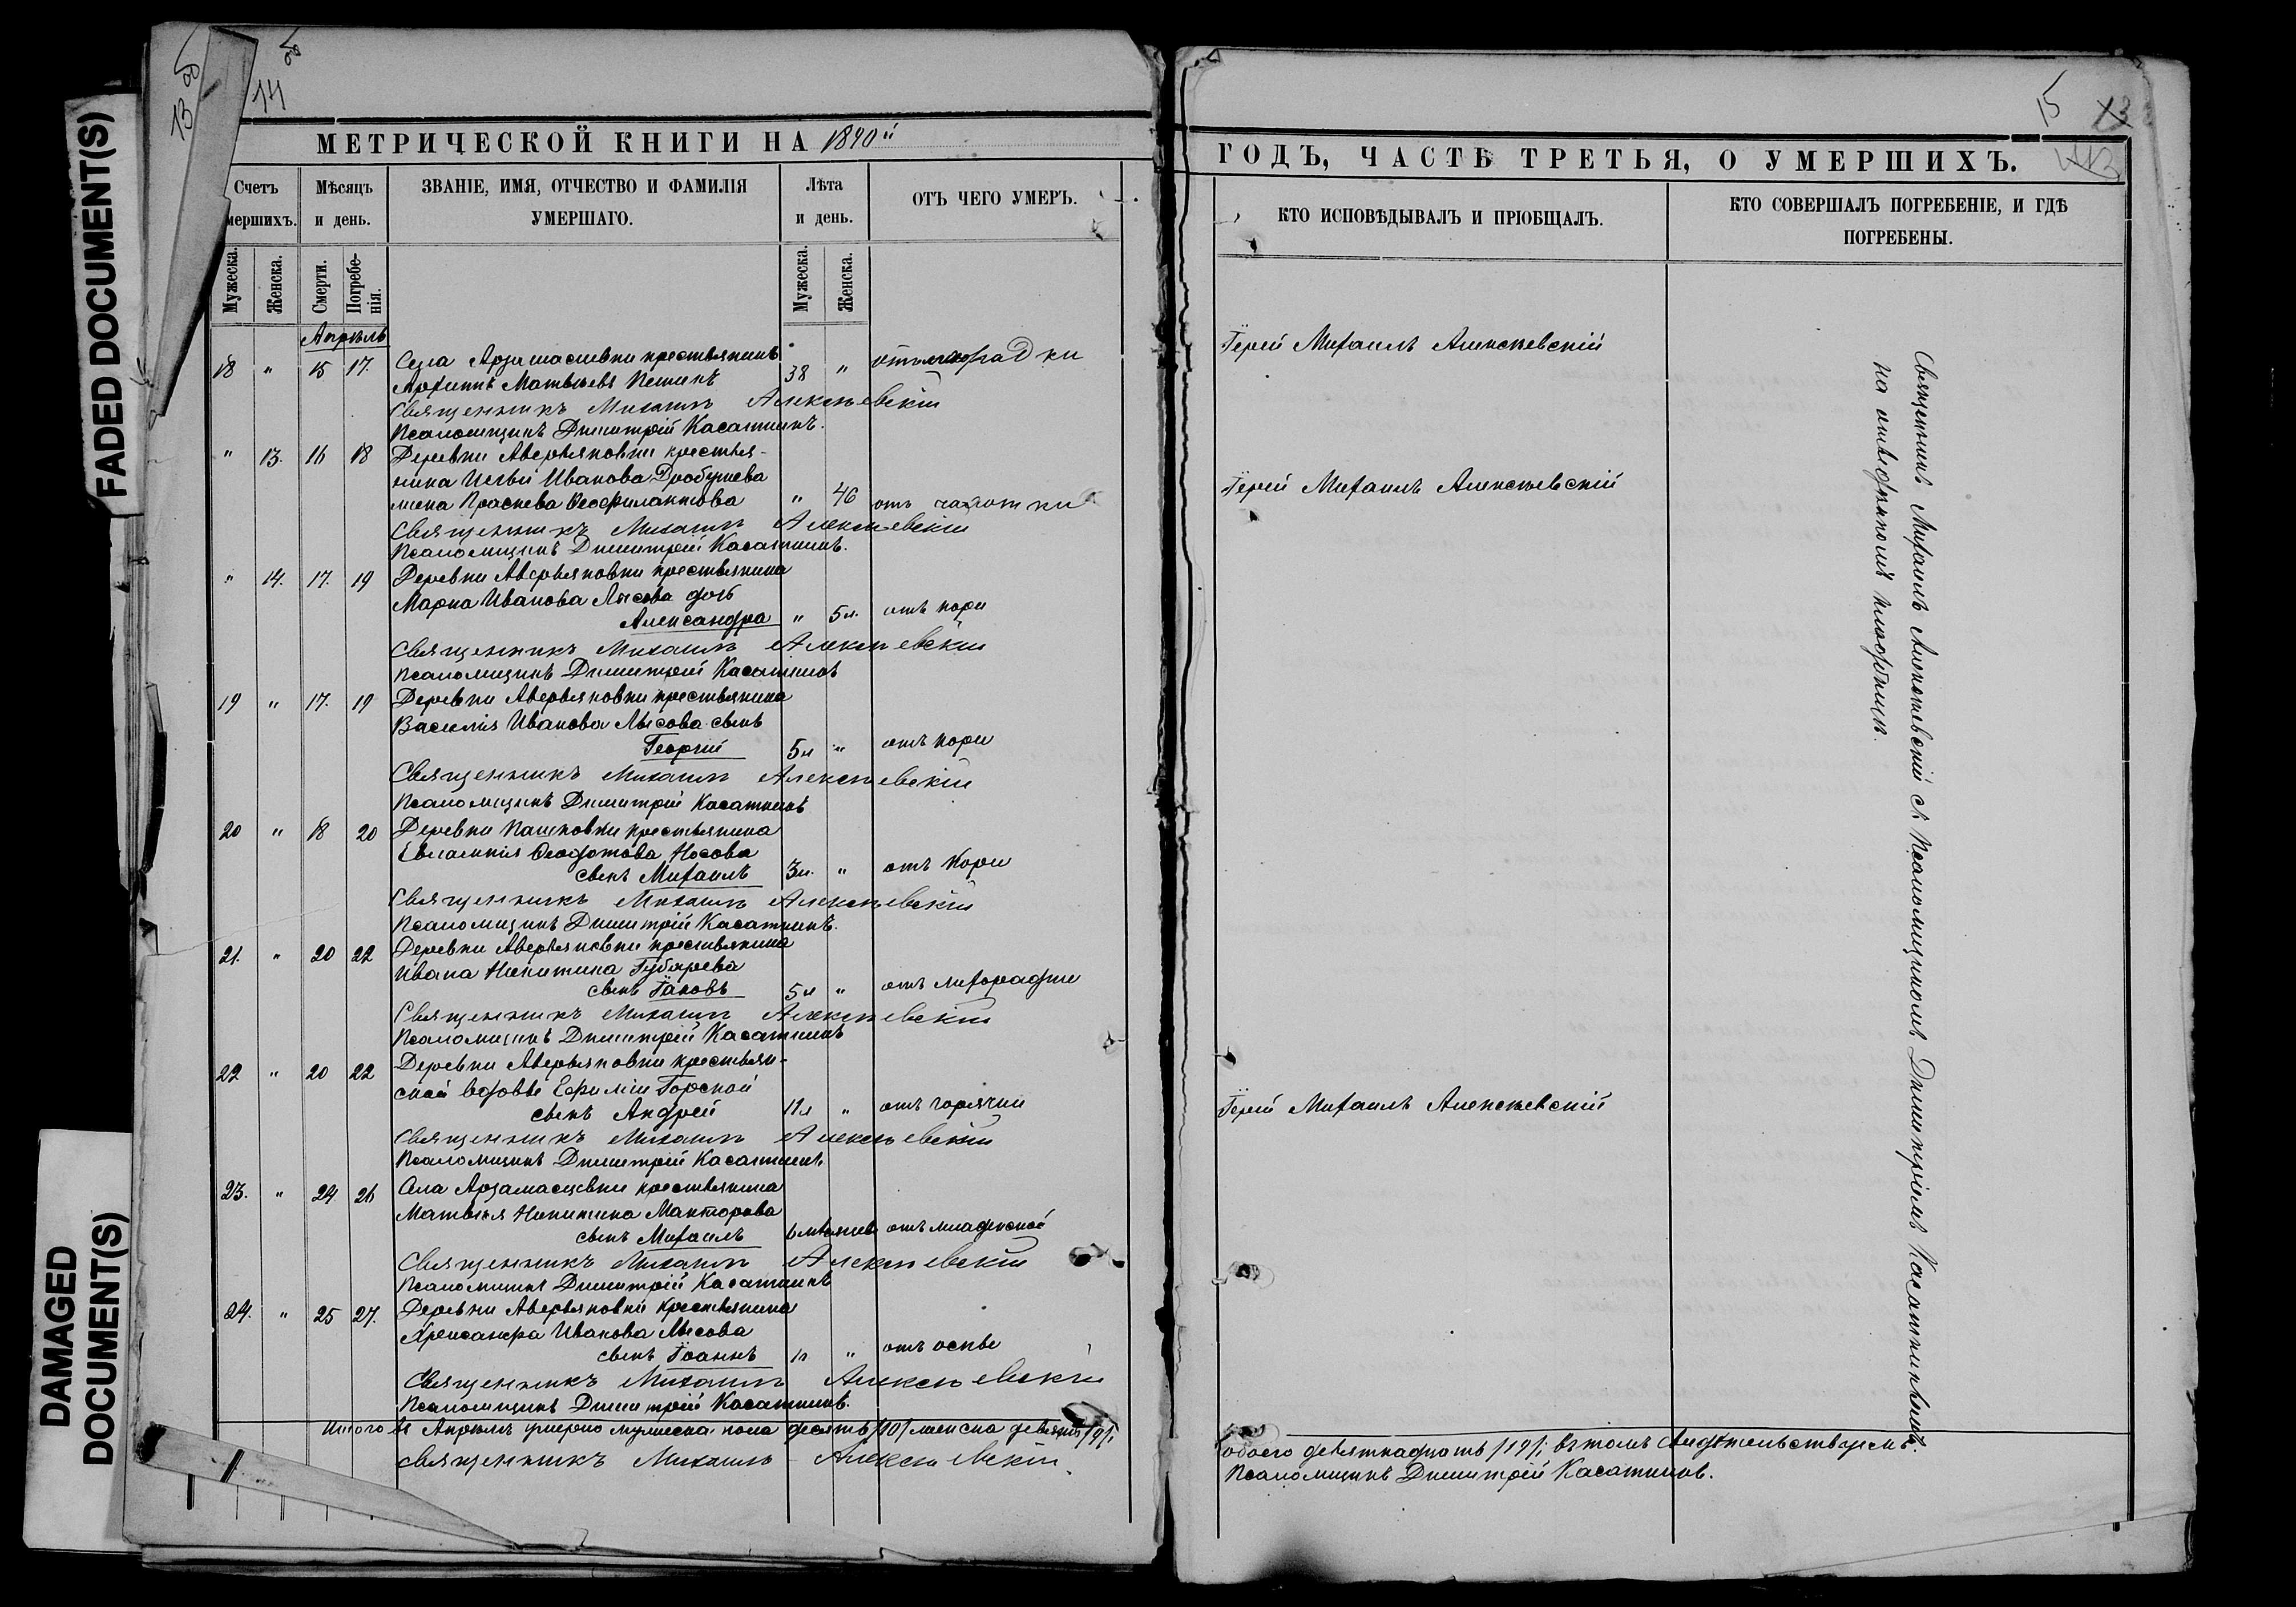 FADED DOCUMENT(S)
DAMAGED
DOCUMENT(S)
13 об
14 об
МЕТРИЧЕСКОЙ КНИГИ НА 1890й
Счетъ
мершихъ.
Мѣсяцъ
и день.
ЗВАНІЕ, ИМЯ, ОТЧЕСТВО И ФАМИЛІЯ
УМЕРШАГО.
Лѣта
и день.
ОТЪ ЧЕГО УМЕРЪ.
Мужеска.
Женска.
Смерти.
Погребе-
нія.
Мужеска.
Женска.
Апрѣль
18 " 15 17. Села Арзамасцевки крестьянинъ
Архипъ Матвѣевъ 38 " отъ лихорадки
Священникъ Михаилъ Алексѣевскій
Псаломщикъ Димитрій Касаткинъ.
" 13. 16 18 Деревни Аверьяновки крестья-
нина Ильи Иванова
жена Праскева Феофилактова " 46 отъ чахотки
Священникъ Михаилъ Алексѣевскій
Псаломщикъ Димитрій Касаткинъ.
" 14. 17. 19 Деревни Аверьяновки крестьянина
Марка Иванова Лысова дочь
Александра " 5л. отъ кори
Священникъ Михаилъ Алексѣевскій
Псаломщикъ Димитрій Касаткинъ
19 " 17. 19 Деревни Аверьяновки крестьянина
Василія Иванова Лысова сынъ
Георгій 5л " отъ кори
Священникъ Михаилъ Алексѣевскій
Псаломщикъ Димитрій Касаткинъ
20 " 18 20 Деревни Пашковки крестьянина
Евлампія Феодотова Носова
сынъ Михаилъ 3л. " отъ кори
Священникъ Михаилъ Алексѣевскій
Псаломщикъ Димитрій Касаткинъ.
21. " 20 22 Деревни Аверьяновки крестьянина
Ивана Никитина Губарева
сынъ Іаковъ 5л " отъ лихорадки
Священникъ Михаилъ Алексѣевскій
Псаломщикъ Димитрій Касаткинъ
22 " 20 22 Деревни Аверьяновки крестьян-
ской вдовы Ефиміи Горской
сынъ Андрей 11л " отъ горячки
Священникъ Михаилъ Алексѣевскій
Псаломщикъ Димитрій Касаткинъ
23. " 24 26 Села Арзамасцевки крестьянина
Матвѣя Никитина
сынъ Михаилъ 6 мѣсяцевъ отъ младенской
Священникъ Михаилъ Алексѣевскій
Псаломщикъ Димитрій Касаткинъ
24. " 25 27. Деревни Аверьяновки крестьянина
Хрисанфа Иванова Лысова
сынъ Іоаннъ 1г " отъ оспы
Священникъ Михаилъ Алексѣевскій
Псаломщикъ Димитрій Касаткинъ.
Итого въ Апрѣлѣ умерло мужеска пола десять /10/ женска девять /9/;
Священникъ Михаилъ Алексѣевскій
15
ГОДЪ, ЧАСТЬ ТРЕТЬЯ, О УМЕРШИХЪ.
КТО ИСПОВѢДЫВАЛЪ И ПРІОБЩАЛЪ.
КТО СОВЕРШАЛЪ ПОГРЕБЕНІЕ, И ГДѢ
ПОГРЕБЕНЫ.
Іерей Михаилъ Алексѣевскій
Іерей Михаилъ Алексѣевскій
Іерей Михаилъ Алексѣевскій
Священникъ Михаилъ Алексѣевскій съ псаломщикомъ Димитріемъ Касаткинымъ.
на отведенномъ кладбищѣ.
обоего девятнадцать /19/; въ томъ свидѣтельствуемъ.
Псаломщикъ Димитрій Касаткинъ.